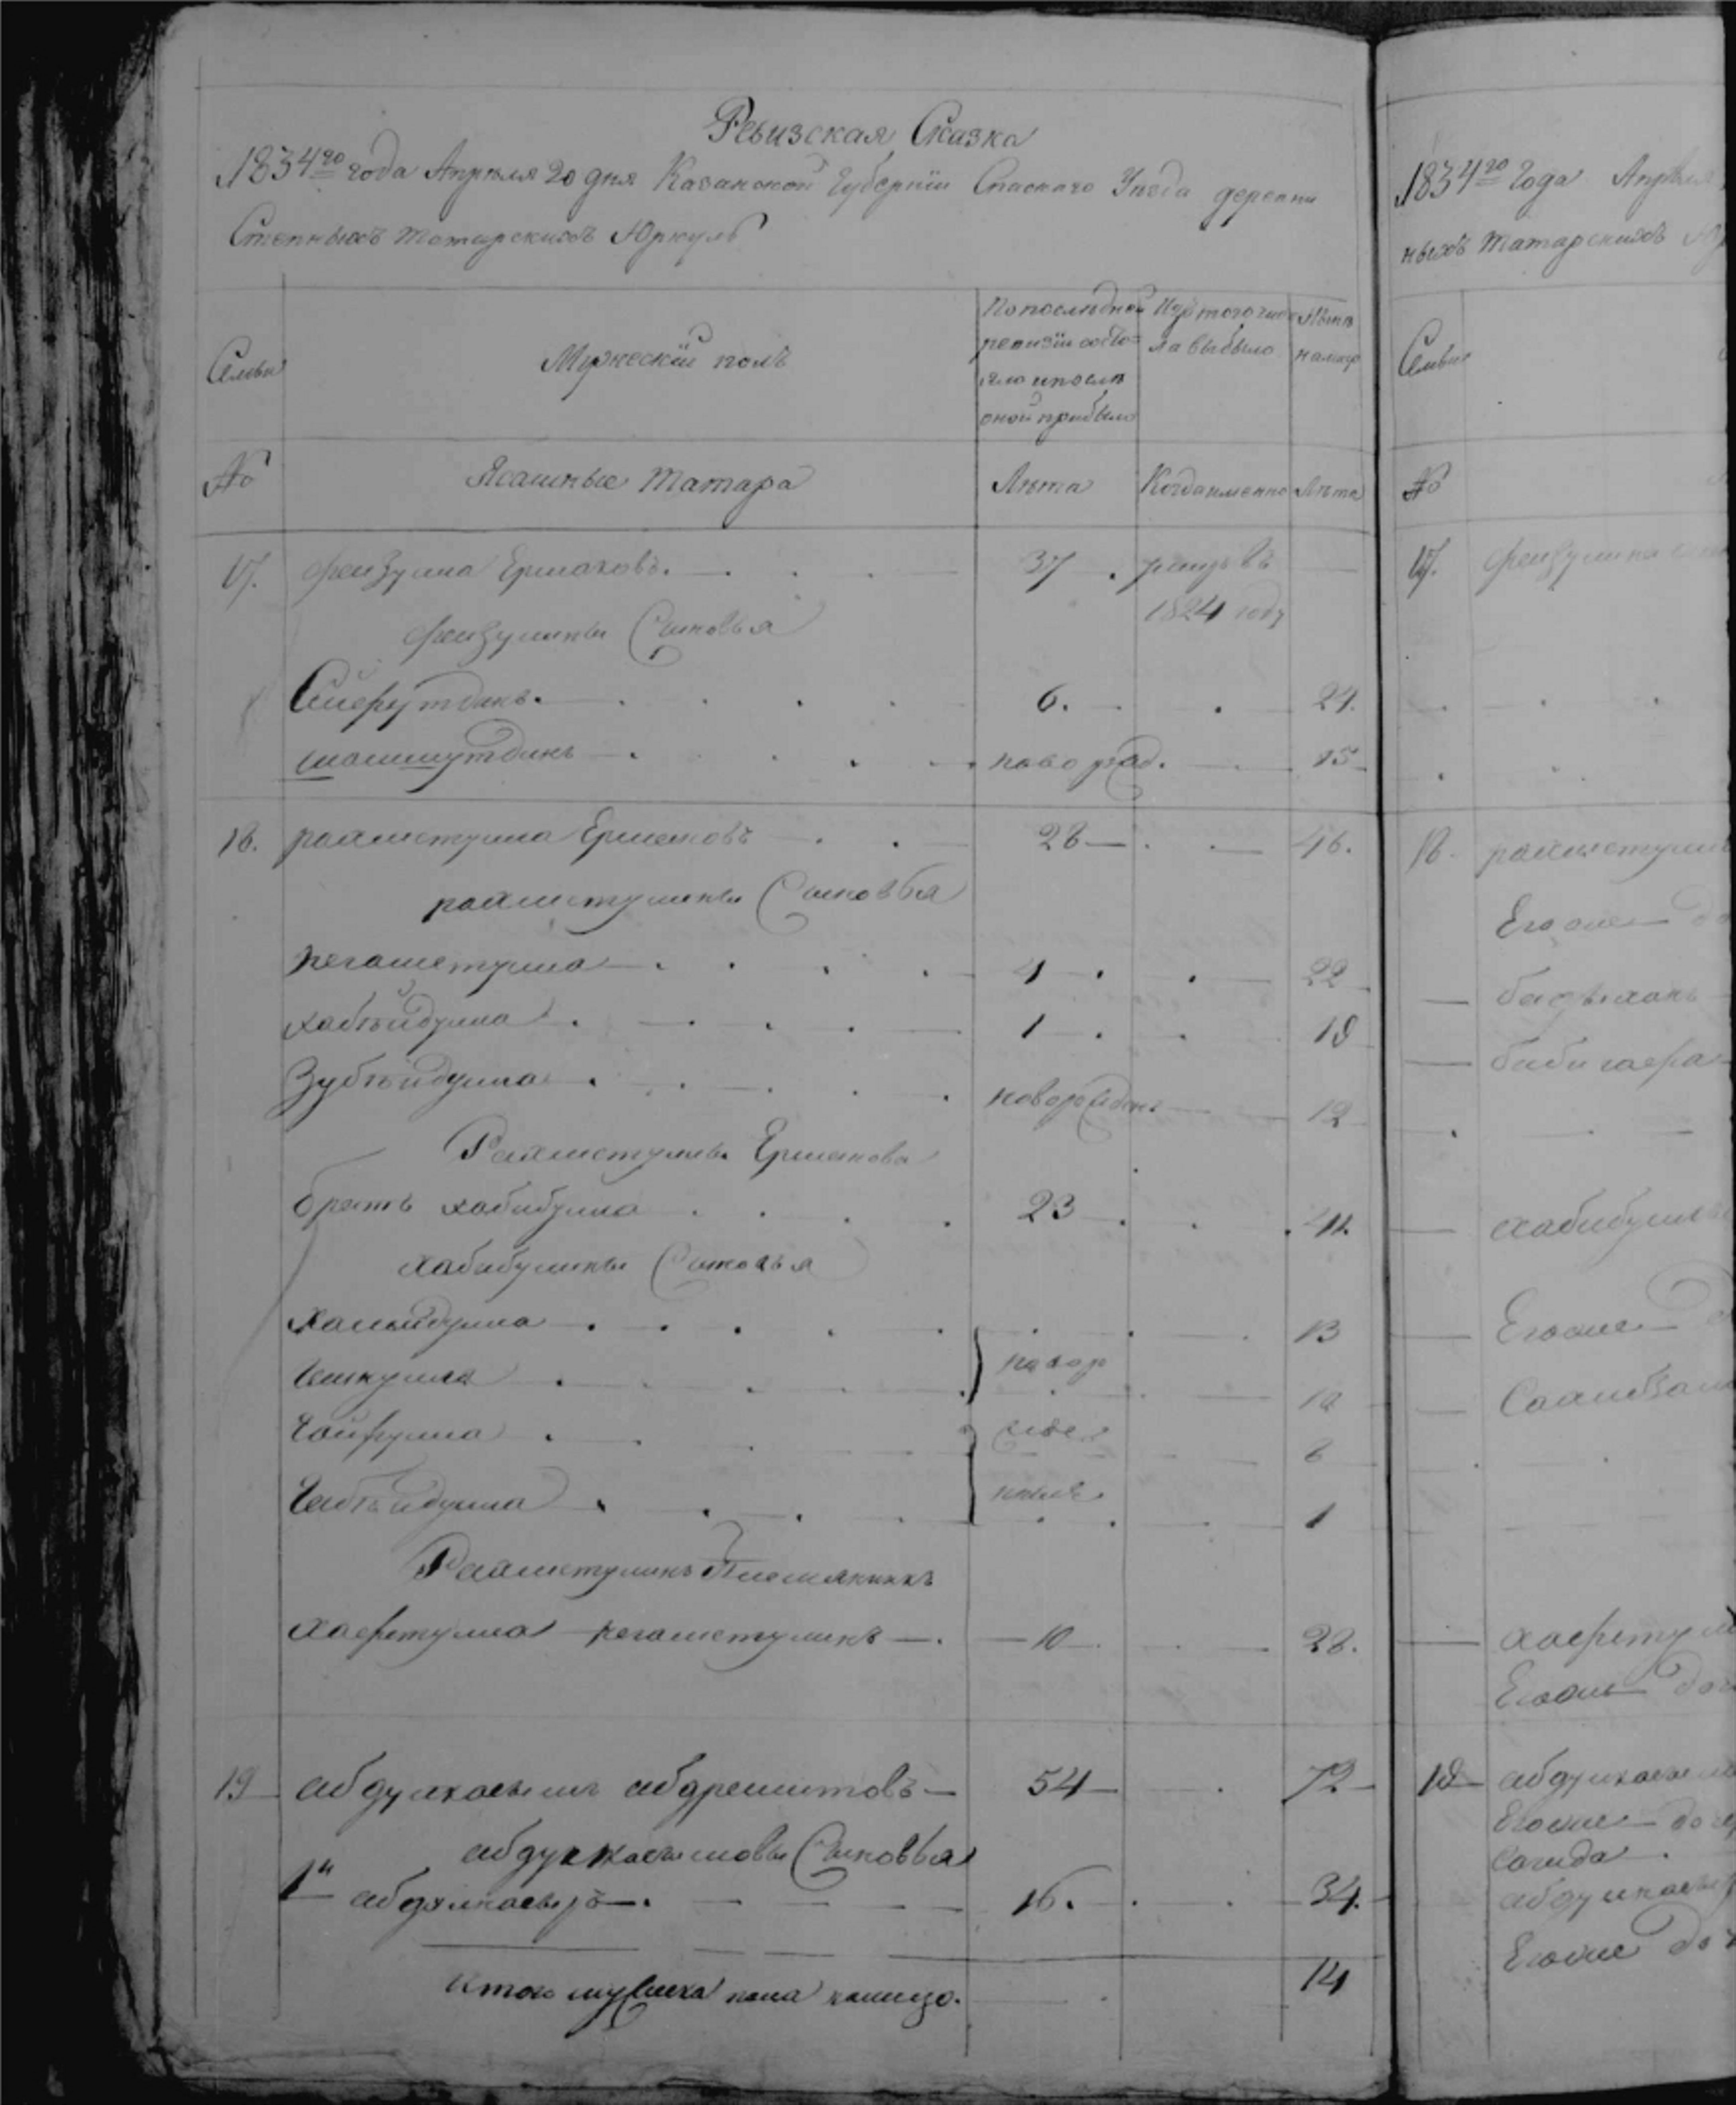 Ревизская Сказка
1834го года Апреля 20 дня Казанской Губернiи Спаскаго Уезда деревни
Степныхъ Татарскихъ Юркуль
Семьи
Мужескiй полъ
По последней ревизiи состояло и после оной прибыло
Изъ того числа выбыло
Ныне налицо
№
Ясашные Татара
Лета
Когда именно
Лета
17. Фейзулла Ермаковъ. 37 умеръ въ
1824 году
Фейзуллины Сыновья
Сайфутдинъ. 6. 24.
шамшутдинъ новорожд. 15
18. рахметулла Ермаковъ 28 46.
рахметуллины Сыновья
негаметулла 4 22
хабъйдулла 1 19
Зубъйдулла новорожденъ 12
Рахметуллы Ермакова
братъ хабибулла 23 41.
хабибуллины Сыновья
Хамидулла 13
новор
Ишкулла 10
Гайфулла 6
жде
Габъйдулла нные 1
Рахметуллинъ Племянникъ
хаеретулла негаметуллинъ 10 28.
19 абдулхасымъ абдрешитовъ 54 72
абдулхасымовы Сыновья
1й абдулнасыръ 16. 34.
Итого мужеска пола налицо. 14
1834го Года Апреля
ныхъ Татарскихъ
Семьи
№
17. Фейзуллина
18. рахметулл
Его же
бибигаефа
хабибуллы
Его же
хаеретул
Его же доч
19 абдулхасым
Его же доч
Сагида
абдулнасыр
Его же до